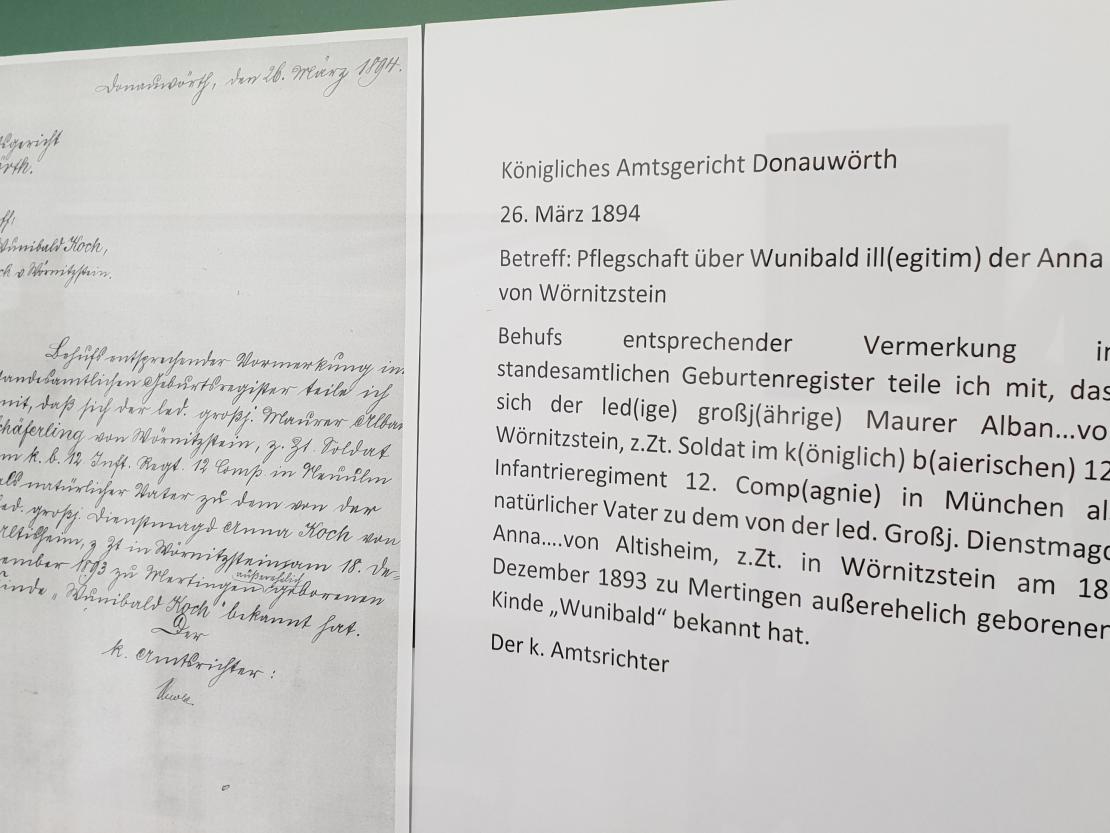 Donauwörth, den 26. März 1894.
sgericht
örth.
ff:
Wunibald Koch,
ck v Wörnitzstein.
Behufs entsprechender Vormerkung im
standesamtlichen Geburtsregister teile ich
mit, daß sich der led. großj. Maurer Alban
Schäferling von Wörnitzstein, z. Zt. Soldat
im k. b. 12 Inft. Regt. 12 Comp in Neuulm
als natürlicher Vater zu dem von der
led. großj. Dienstmagd Anna Koch von
Altisheim, z Zt in Wörnitzstein am 18. De=
zember 1893 zu Mertingen außerehelich geborenen
Kinde „Wunibald Koch" bekannt hat.
Der
k. Amtsrichter:
Königliches Amtsgericht Donauwörth
26. März 1894
Betreff: Pflegschaft über Wunibald ill(egitim) der Anna
von Wörnitzstein
Behufs entsprechender Vermerkung i
standesamtlichen Geburtenregister teile ich mit, das
sich der led(ige) großj(ährige) Maurer Alban...vo
Wörnitzstein, z.Zt. Soldat im k(öniglich) b(aierischen) 12
Infantrieregiment 12. Comp(agnie) in München al
natürlicher Vater zu dem von der led. Großj. Dienstmagd
Anna....von Altisheim, z.Zt. in Wörnitzstein am 18
Dezember 1893 zu Mertingen außerehelich geborenen
Kinde „Wunibald“ bekannt hat.
Der k. Amtsrichter